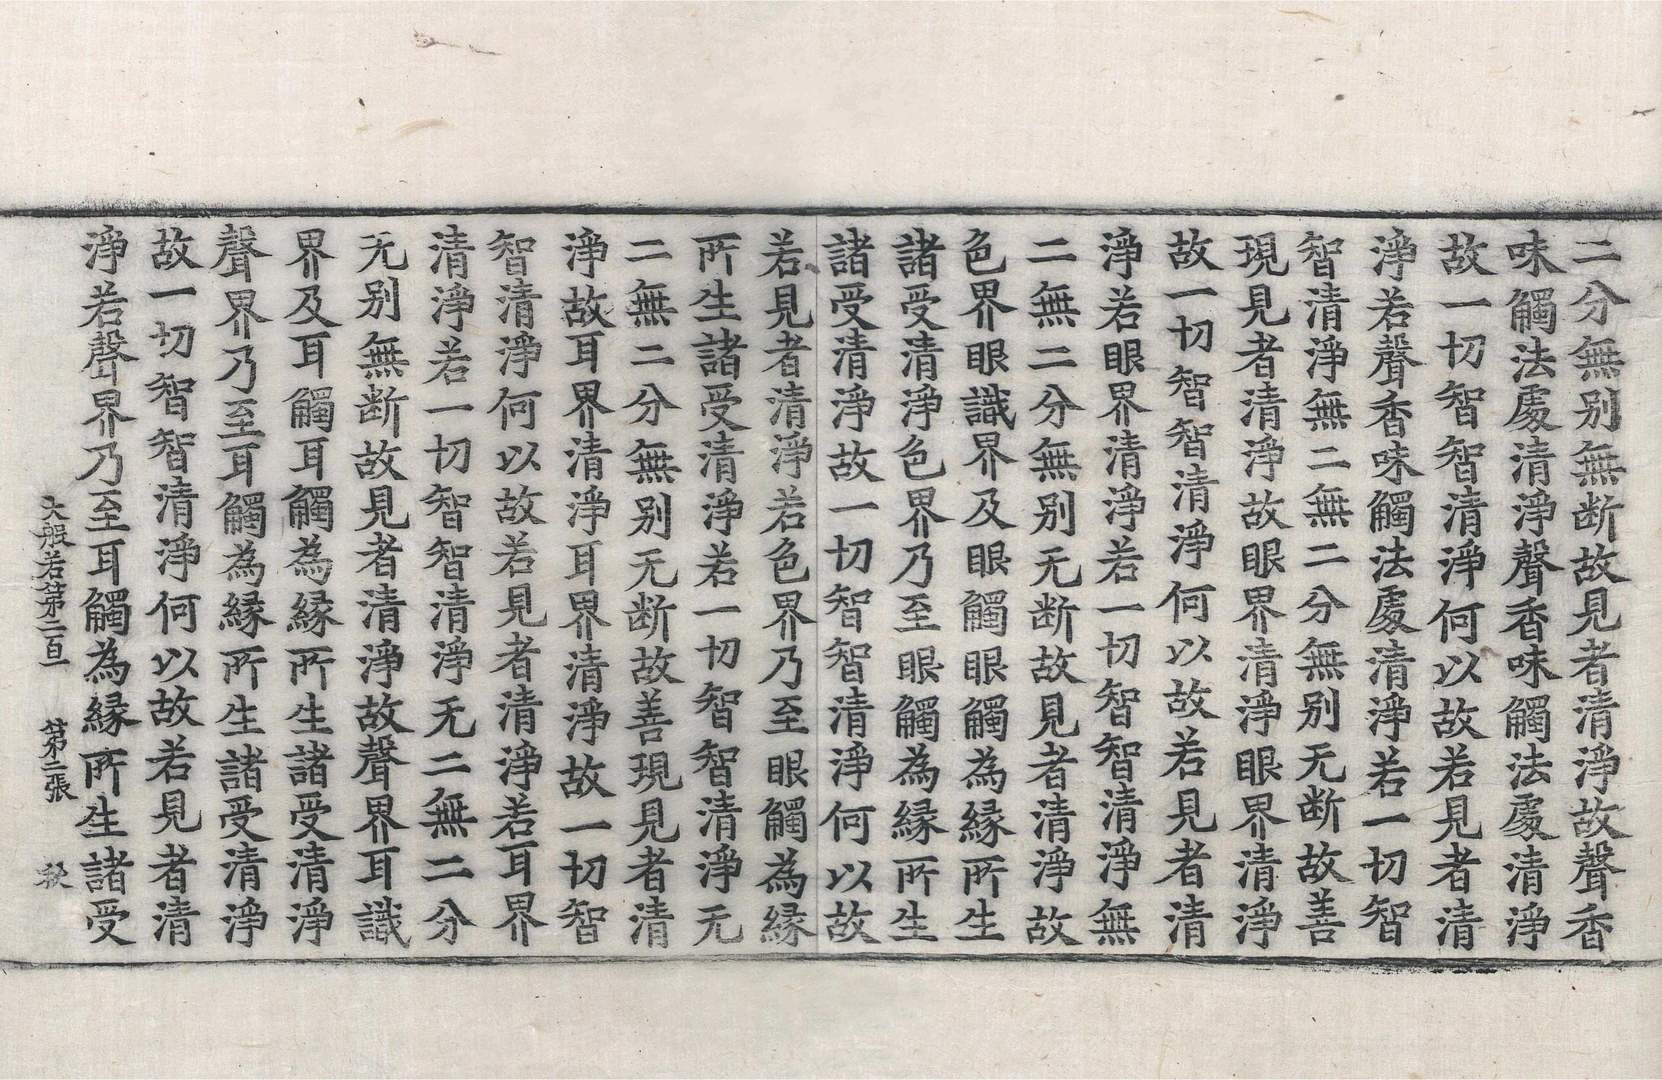 二分無别無断故見者清淨故聲香
味觸法處清淨聲香味觸法處清淨
故一切智智清淨何以故若見者清
淨若聲香味觸法處清淨若一切智
智清淨無二無二分無别无断故善
現見者清淨故眼界清淨眼界清淨
故一切智智清淨何以故若見者清
淨若眼界清淨若一切智智清淨無
二無二分無别无断故見者清淨故
色界眼識界及眼觸眼觸為縁所生
諸受清淨色界乃至眼觸為縁所生
諸受清淨故一切智智清淨何以故
若見者清淨若色界乃至眼觸為縁
所生諸受清淨若一切智智清淨无
二無二分無别无断故善現見者清
淨故耳界清淨耳界清淨故一切智
智清淨何以故若見者清淨若耳界
清淨若一切智智清淨无二無二分
无别無断故見者清淨故聲界耳識
界及耳觸耳觸為縁所生諸受清淨
聲界乃至耳觸為縁所生諸受清淨
故一切智智清淨何以故若見者清
淨若聲界乃至耳觸為縁所生諸受
大般若第二百一 第二張 秋